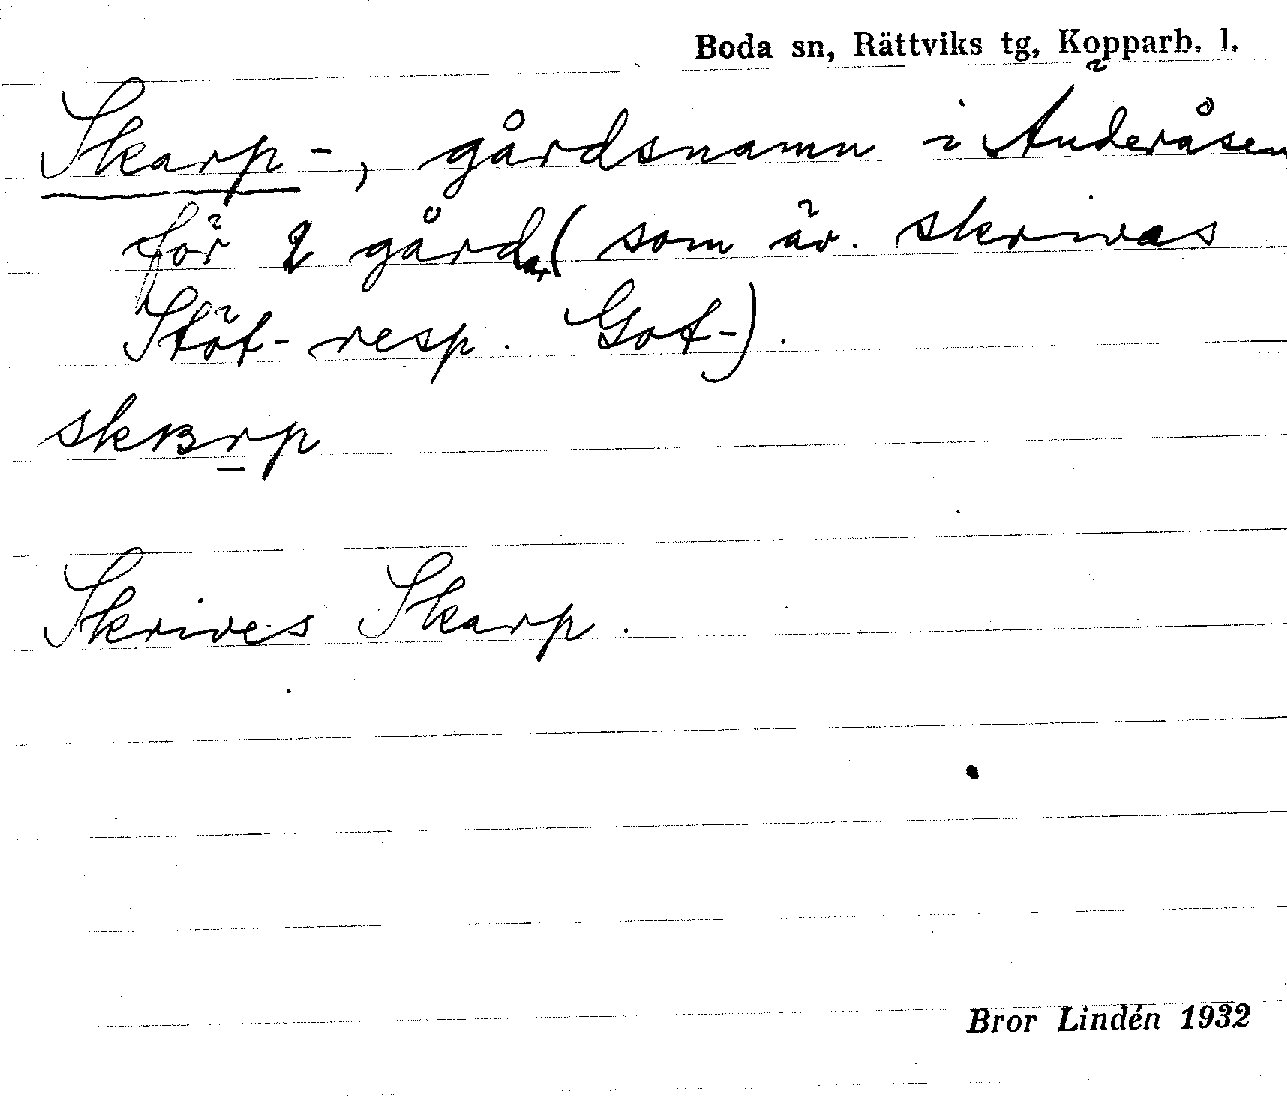 Boda sn, Rättviks tg, Kopparb. l.
Skarp-, gårdsnamn i Änderåsen
för 2 gårdar (som äv. skrivas
Stöt- resp. Got-).
skʙrp
Skrives Skarp.
Bror Lindén 1932